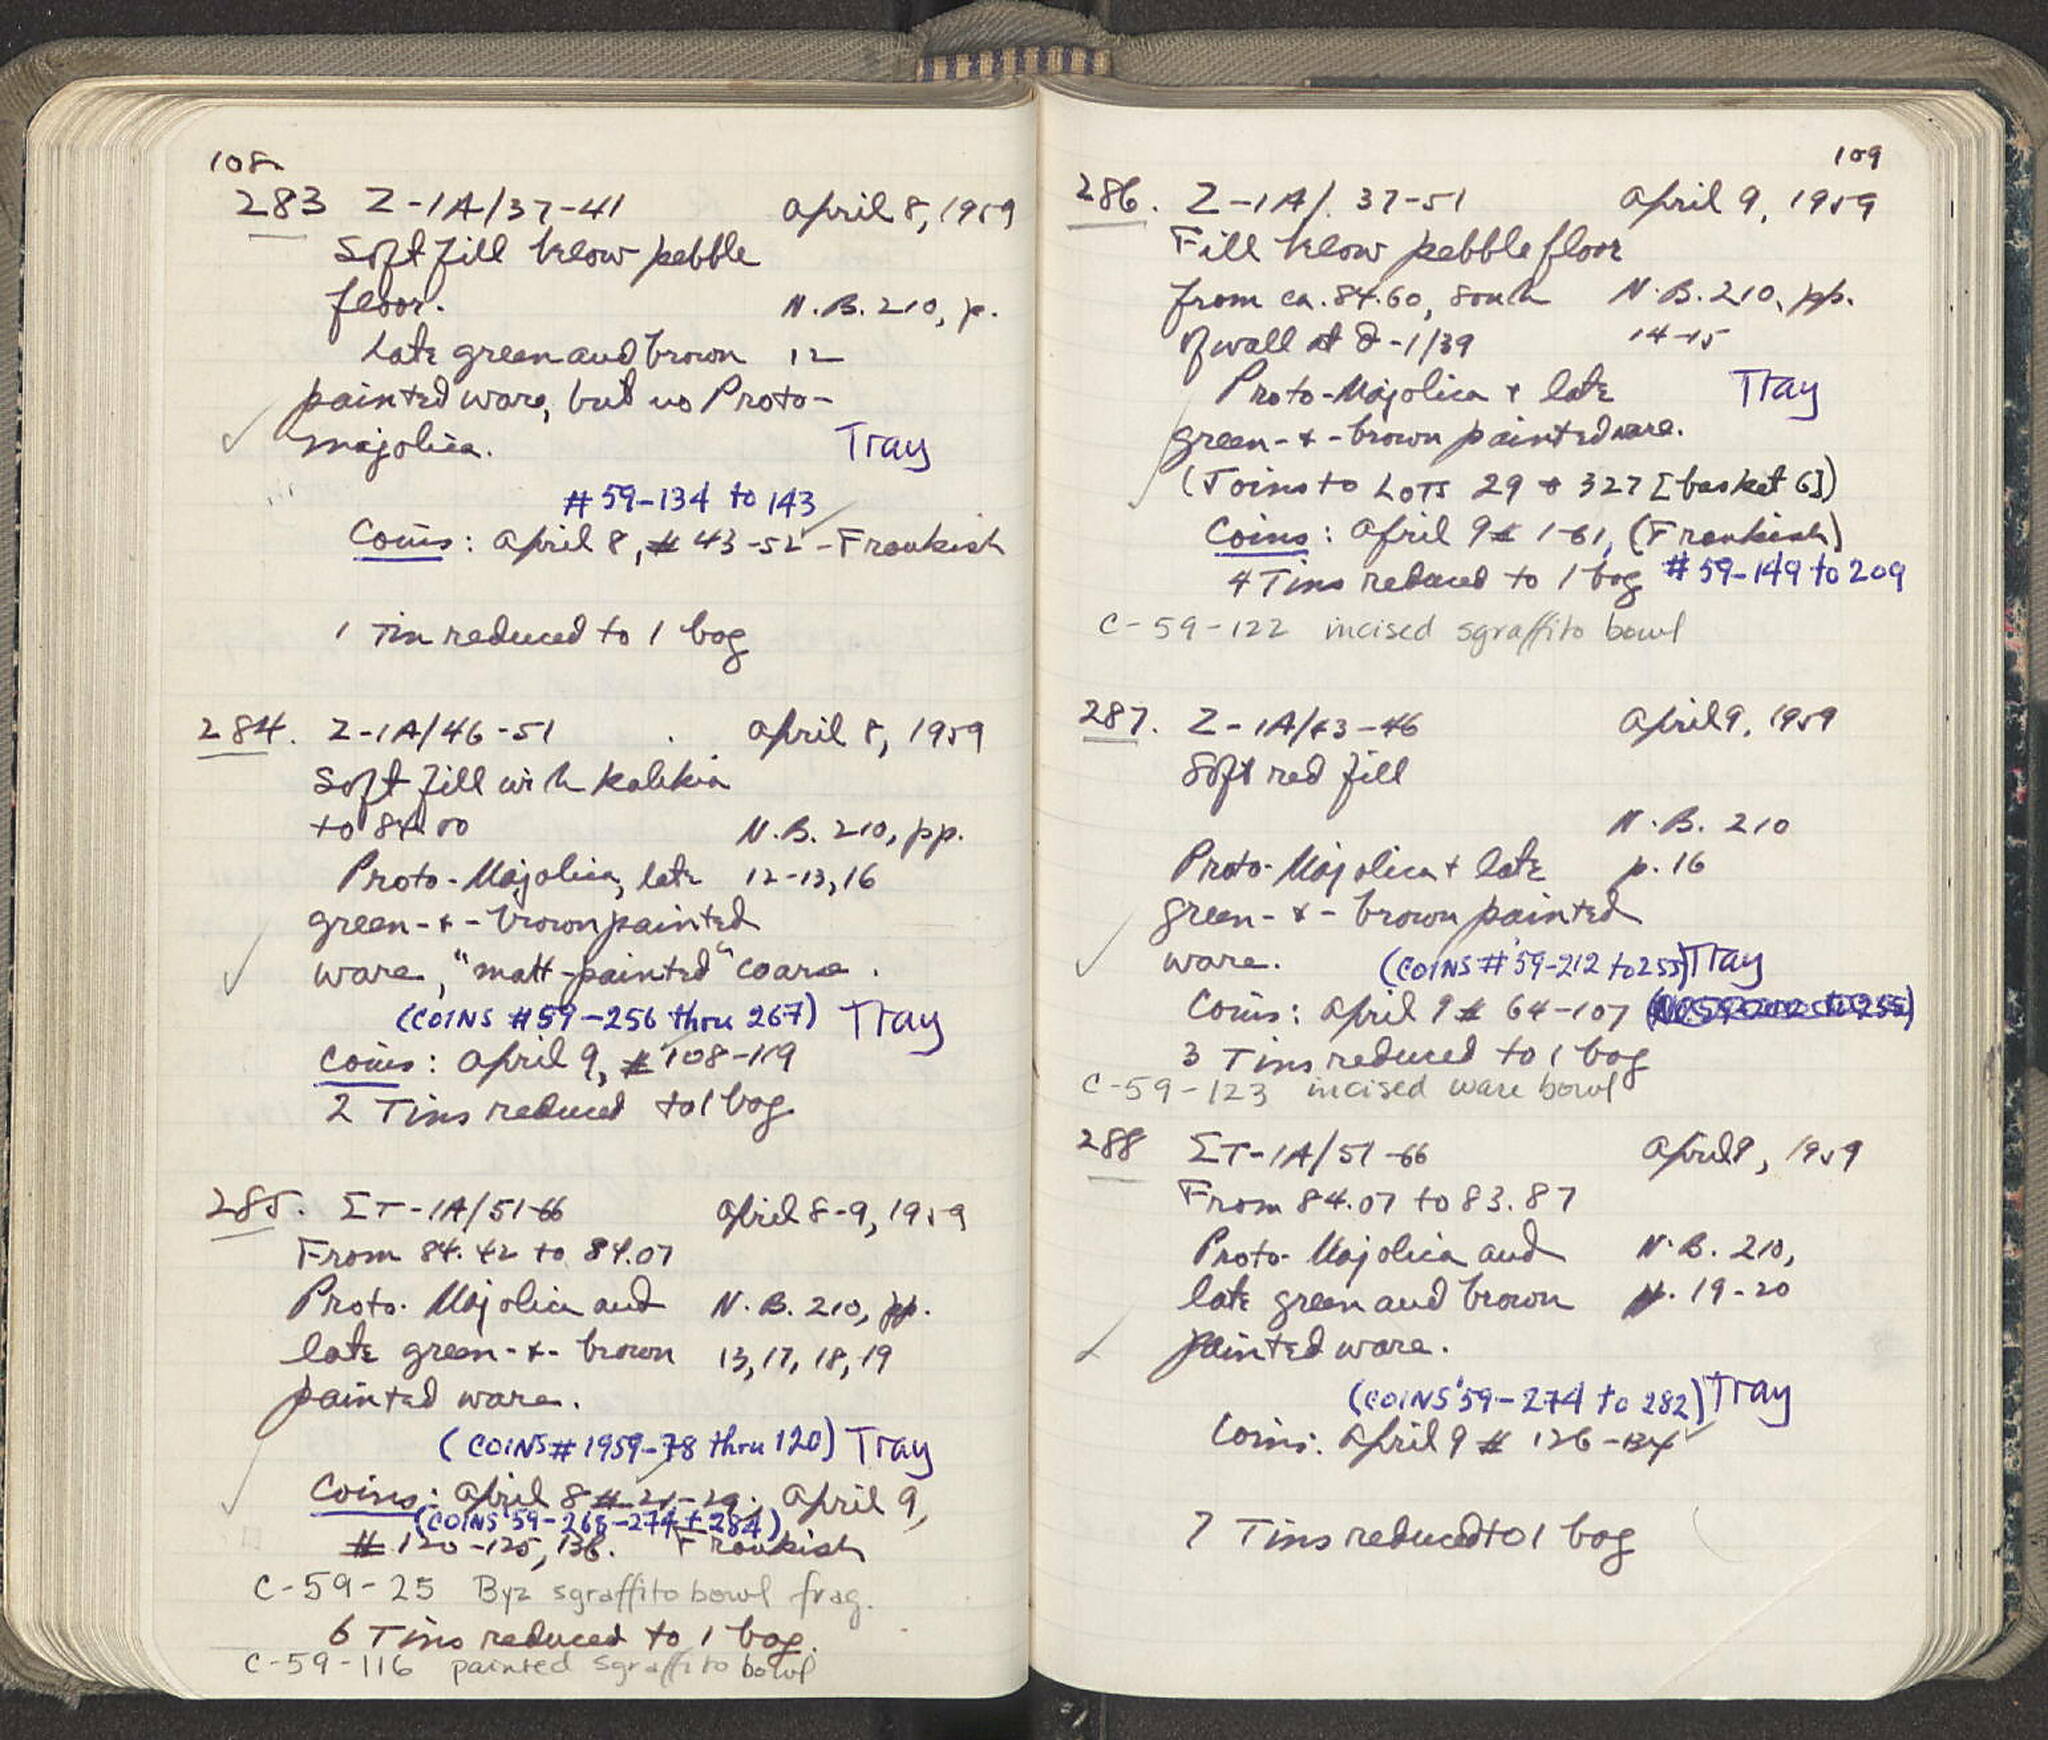 108
283 Z-1A/37-41 April 8, 1959
Soft fill below pebble
floor. N.B. 210, p.
Late green and brown 12
painted ware, but no Proto-
majolica. Tray
# 59-134 to 143
Coins: April 8, # 43-52 - Frankish
1 Tin reduced to 1 bag
284. Z-1A/46-51 April 8, 1959
Soft fill with kalikia
to 84.00 N.B. 210, pp.
Proto-Majolica, late 12-13, 16
green-+-brown painted
ware, "matt-painted" coarse.
(COINS #59-256 thru 267) Tray
Coins: April 9, # 108-119
2 Tins reduced to 1 bag
285. ΣT-1A/51-66 April 8-9, 1959
From 84.42 to 84.07
Proto-Majolica and N.B. 210, pp.
late green-+-brown 13, 17, 18, 19
painted ware.
(COINS # 1959-78 thru 120) Tray
Coins: April 8 # 21-29; April 9,
(COINS '59-268-274 + 284)
# 120-125, 136. Frankish
C-59-25 Byz sgraffito bowl frag.
6 Tins reduced to 1 bag.
C-59-116 painted sgraffito bowl
109
286. Z-1A/. 37-51 April 9, 1959
Fill below pebble floor
from ca. 84.60, south N.B. 210, pp.
of wall at -1/39 14-15
Proto-Majolica + late Tray
green-+-brown painted ware.
(Joins to LOTS 29 + 327 [basket 6])
Coins: April 9 # 1-61, (Frankish)
4 Tins reduced to 1 bag # 59-149 to 209
C-59-122 incised sgraffito bowl
287. Z-1A/43-46 April 9, 1959
Soft red fill
N.B. 210
Proto-Majolica + late p. 16
green-+-brown painted
ware. (COINS # '59-212 to 255) Tray
Coins: April 9 # 64-107
3 Tins reduced to 1 bag
C-59-123 incised ware bowl
288 ΣT-1A/51-66 April 9, 1959
From 84.07 to 83.87
Proto-Majolica and N.B. 210,
late green and brown p. 19-20
painted ware.
(COINS '59-274 to 282) Tray
Coins: April 9 # 126-134
7 Tins reduced to 1 bag